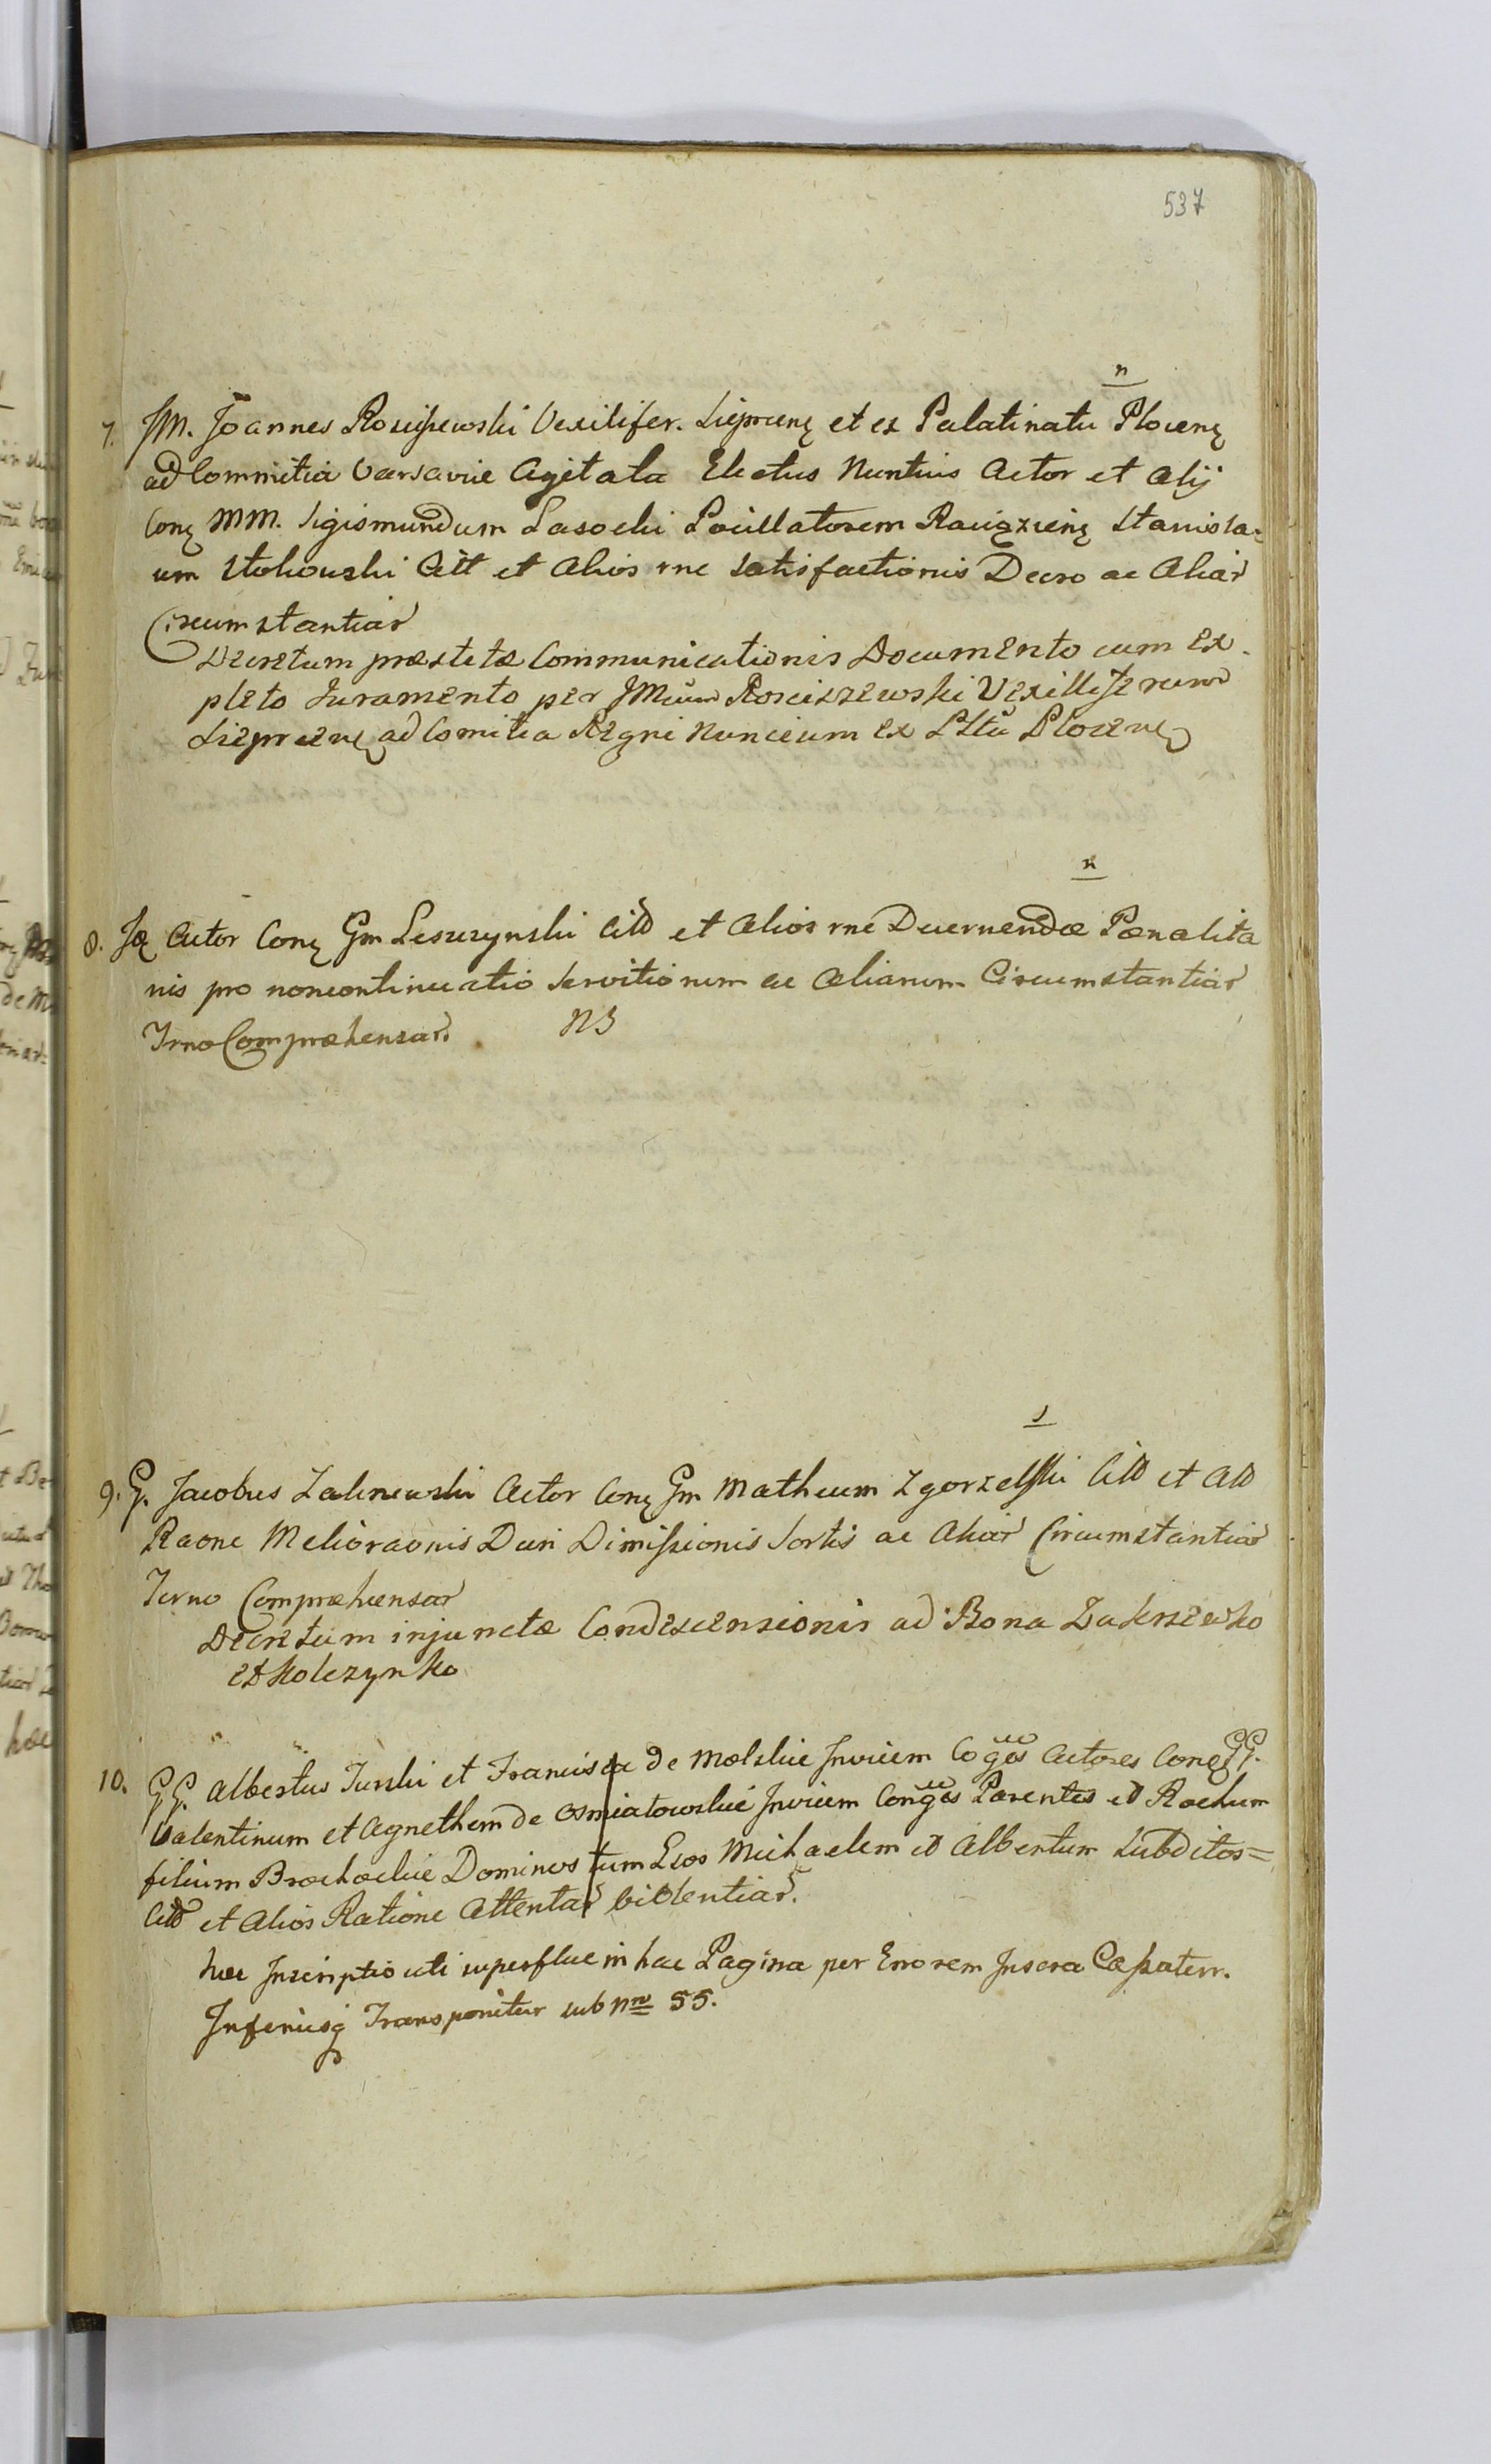 537
n
7. JM. Joannes Rosciszewski Vexilifer. Siepracenę et ex Palatinatu Plocenę
ad Commitia Varsaviæ Agitata Electus Nuntius Actor et Alij
Conę MM. Sigismundum Lasocki Pocillatorem Raciązienę Stanisla-
um Stokowski Citt et Alios rne Satisfactionis Decro ac Aliar
Circumstantiar
Decretum præstitæ Communicationis Documento cum Ex-
pleto Juramento per JMcum Rosciszewski Vexilliferum
Siepracenę ad Comitia Regni Nuncium ex Plltu Plocenę
n
8.Ję Actor Conę Gm Leszczynski Citt et Alios rne Decernendæ Pœnalita
nis pro noncontinuatio Servitiorum ac Aliarum Circumstantiar
Trno Compræhensar. NB
s
9. G. Jacobus Zalenewski Actor Conę Gm Matheum Zgorzelski Citt et All
Raone Melioraonis Duri Dimissionis Sortis ac Aliar Circumstantiar
Terno Compræhensar
Decretum injunctæ Condescensionis ad Bona Zakrzewko
et Kolczynko
10. GG. Albertus Turski et Francisca de Molskie Invicem Coges Actores Conę GG.
Valentinum et Agnethem de Osmiatowskie Invicem Conges Parentes et Rochum
filium Brochockie Dominos tum Lros Michaelem et Albertum Subditos=
Citt et Alios Ratione Attentar Violentiar.
hæc Inscriptio uti superflue in hac Pagina per Errorem Inserta Cassatur.
Inferiusq Transponitur sub nro 55.